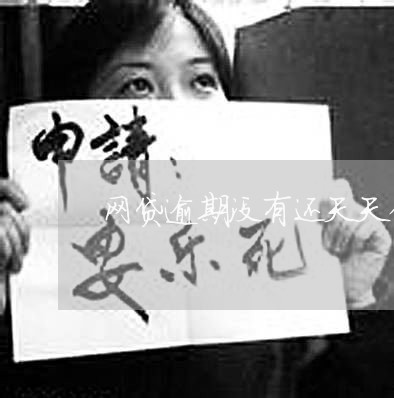 申請：
网贷逾期没有还天天
安乐死